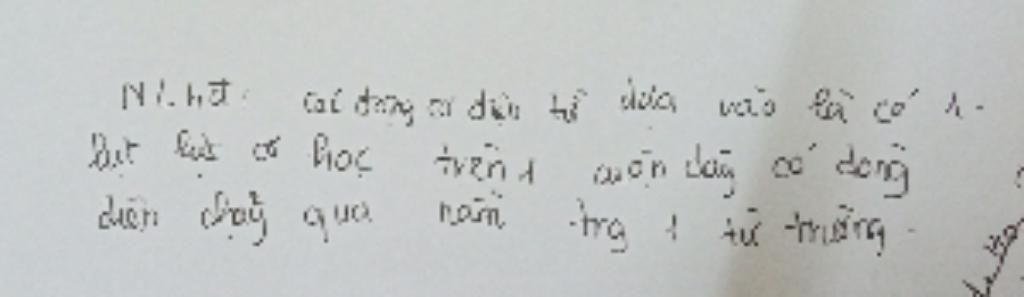 N/. hđ: các động cơ điện từ dựa vào là có 1
lực cơ học trên 1 cuộn dây có dòng
điện chạy qua nằm trg 1 từ trường.